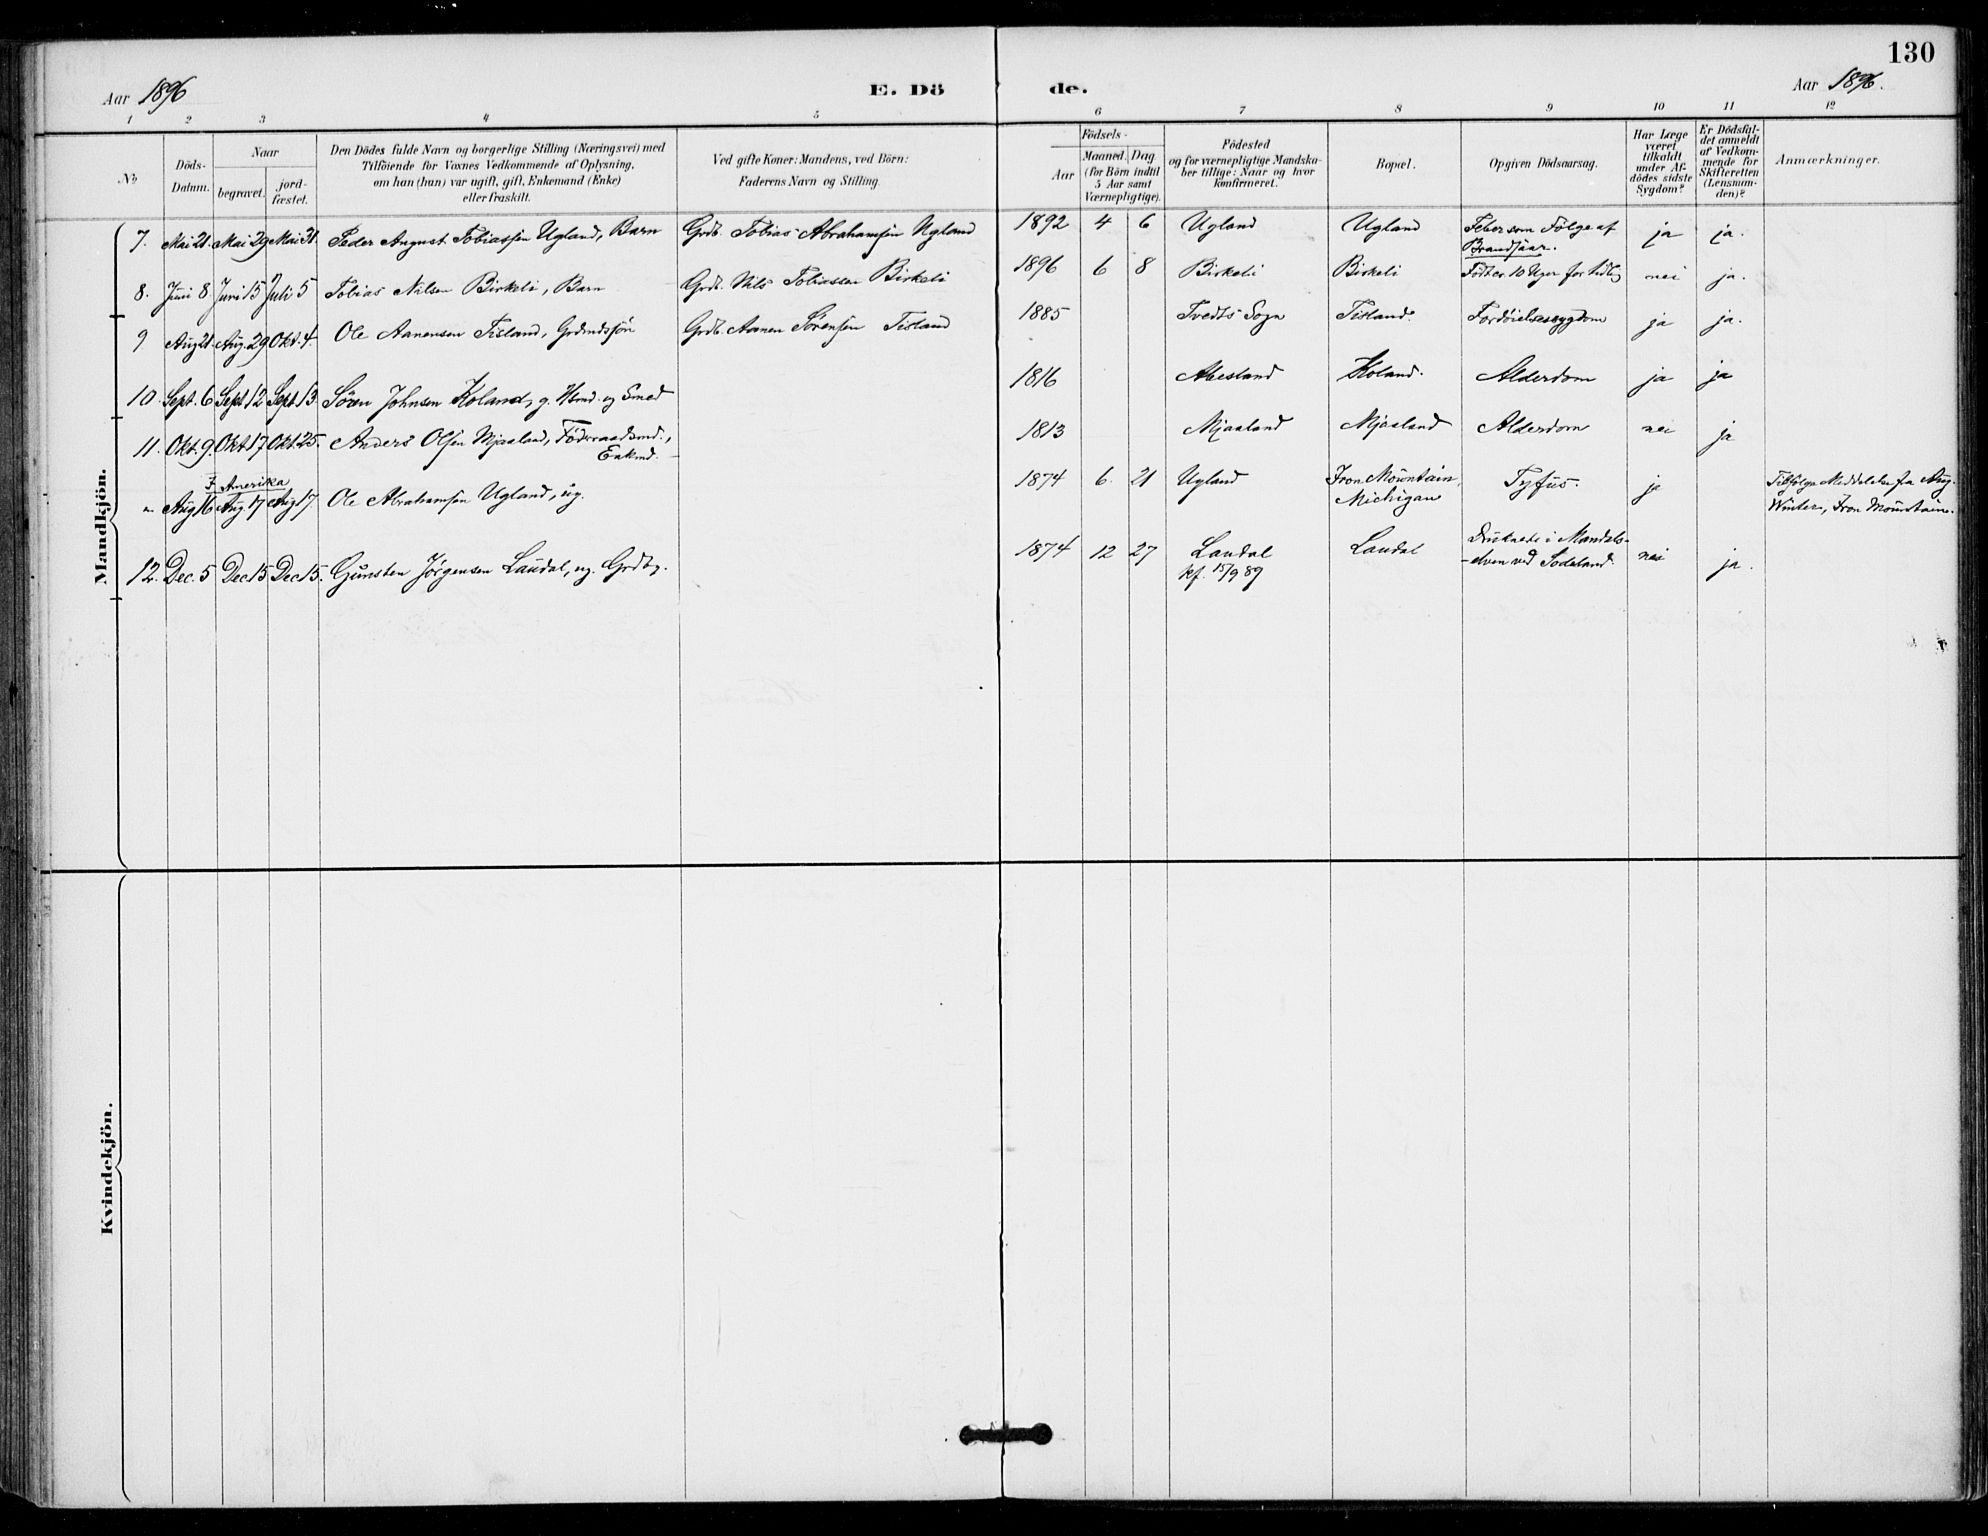 130
Aar 1896
E. Dö
de.
Aar 1896.
1 2 3 4 5 6 7 8 9 10 11 12
No
Döds-
Datum.
Naar
begravet.
jord-
fæstet.
Den Dödes fulde Navn og borgerlige Stilling (Næringsvei) med
Tilföiende for Voxnes Vedkommende af Oplysning,
om han (hun) var ugift, gift, Enkemand (Enke)
eller fraskilt.
Ved gifte Koner: Mandens, ved Börn:
Faderens Navn og Stilling.
Födsels-
Aar
Maaned. Dag
(for Börn indtil
5 Aar samt
Værnepligtige).
Födested
og for værnepligtige Mandska-
ber tillige: Naar og hvor
konfirmeret.
Bopæl.
Opgiven Dödsaarsag.
Har Læge
været
tilkaldt
under Af-
dödes sidste
Sygdom?
Er Dödsfal-
det anmeldt
af Vedkom-
mende for
Skifteretten
(Lensman-
den)?
Anmærkninger.
Mandkjön.
7. Mai 21. Mai 29 Mai 31. Peder August Tobiassen Ugland, Barn Grdb. Tobias Abrahamsen Ugland 1892 4 6 Ugland Ugland Feber som Følge af
Brandsaar. ja ja.
8. Juni 8 Juni 15 Juli 5 Tobias Nilsen Birkeli, Barn Grdb. Nils Tobiassen Birkeli 1896 6 8 Birkeli Birkeli Født ca. 10 Uger for tidlig nei ja.
9 Aug 21. Aug. 29 Okt. 4. Ole Aanensen Tisland, Grdmdssøn Grdb. Aanen Sørensen Tisland 1885 Tvedts Sogn Tisland. Fordøielsessygdom ja ja.
10. Sept. 6 Sept 12 Sept 13. Søren Johnsen Koland, g. Hsmd. og Smed 1816 Abesland Koland. Alderdom ja ja
11. Okt. 9. Okt 17 Okt. 25. Anders Olsen Mjaaland, Føderaadsmd.,
Enkmd. 1813 Mjaaland Mjaaland Alderdom nei ja
I Amerika
" Aug 16 Aug. 17 Aug 17. Ole Abrahamsen Ugland, ug. 1874 6. 21 Ugland Iron Mountain,
Michigan Tyfus. ja Ifølge Meddelelse fra Aug.
Winter, Iron Mountain.
12. Dec. 5 Dec 15 Dec 15. Gunsten Jørgensen Laudal, ug. Grdbg. 1874 12 27 Laudal
kf. 15/9 89 Laudal Druknede i Mandals-
-elven ved Sodeland. nei ja.
Kvindekjön.